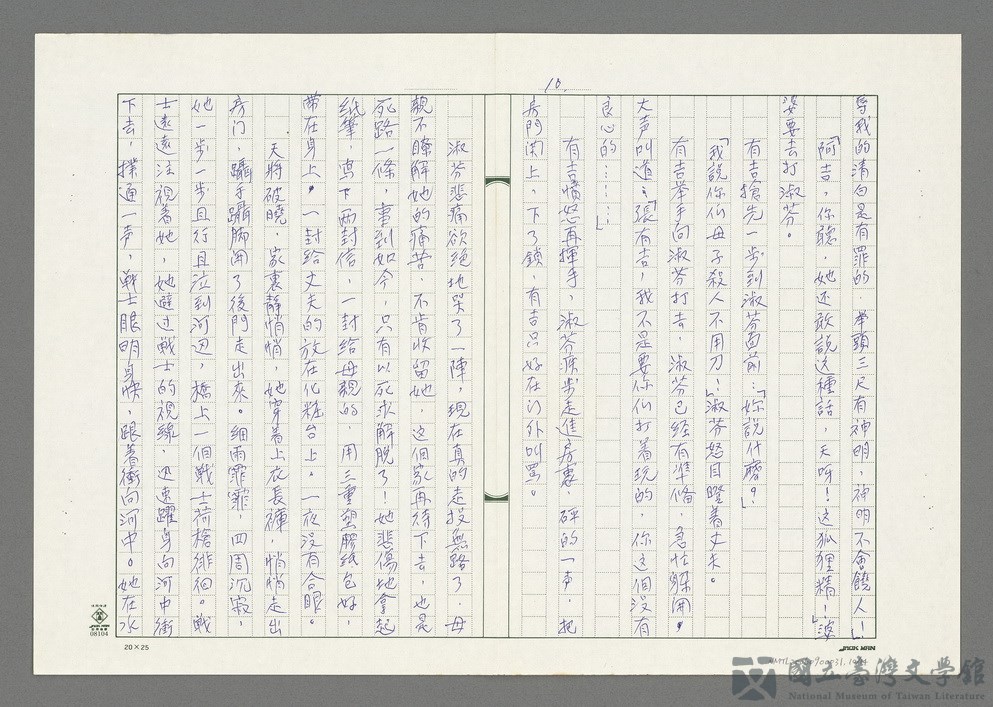 10.
辱我的清白是有罪的．舉頭三尺有神明，神明不會饒人！」
「阿吉，你聽，她还敢說这種話，天呀！这狐狸精！」婆
婆要去打淑芬。
有吉搶先一步到淑芬面前：「妳說什麼？」
「我說你们母子殺人不用刀！」淑芬怒目瞪着丈夫。
有吉举手向淑芬打去，淑芬已經有準備，急忙躲開，
大声叫道：「張有吉，我不是要你们打着玩的，你这個沒有
良心的……」
有吉憤怒再揮手，淑芬疾步走進房裏，砰的一声，把
房門関上，下了鎖，有吉只好在门外叫罵。
淑芬悲痛欲绝地哭了一陣，現在真的走投無路了．母
親不瞭解她的痛苦，不肯收留她，这個家再待下去，也是
死路一條，事到如今，只有以死求解脱了！她悲傷地拿起
纸筆，寫下兩封信，一封给母親的，用三重塑膠纸包好，
带在身上，一封给丈夫的放在化粧台上。一夜沒有合眼。
天將破曉．家裏静悄悄，她穿着上衣長褲，悄悄走出
房门，躡手躡脚開了後門走出來。細雨霏霏，四周沉寂，
她一步一步且行且泣到河边，橋上一個戰士荷槍徘徊。戰
士遠遠注視着她，她避过戰士的視線，迅速躍身向河中衝
下去，撲通一声，戰士眼明身快，跟着衝向河中。她在水
JAOK MAN
08104
20×25
國立臺灣文學館
National Museum of Taiwan Literature